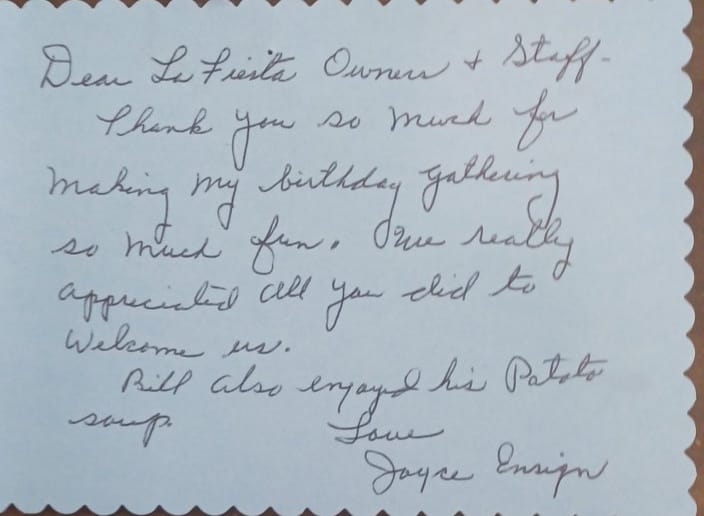 Dear La Fiesta Owners + Staff-
Thank you so much for
making my birthday gathering
so much fun. We really
appreciated all you did to
Welcome us.
Bill also enjoyed his Potato
soup.
Love
Joyce Ensign